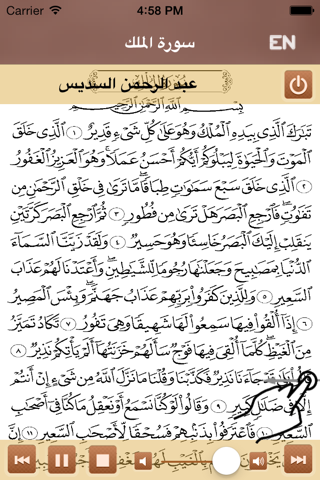 Carrier 4:58 PM
سورة الملك
EN
عبد الرحمن السديس
بِسْمِ اللَّهِ الرَّحْمَٰنِ الرَّحِيمِ
تَبَٰرَكَ ٱلَّذِى بِيَدِهِ ٱلْمُلْكُ وَهُوَ عَلَىٰ كُلِّ شَىْءٍ قَدِيرٌ ١ ٱلَّذِى خَلَقَ
ٱلْمَوْتَ وَٱلْحَيَوٰةَ لِيَبْلُوَكُمْ أَيُّكُمْ أَحْسَنُ عَمَلًا وَهُوَ ٱلْعَزِيزُ ٱلْغَفُورُ
٢ ٱلَّذِى خَلَقَ سَبْعَ سَمَٰوَٰتٍ طِبَاقًا مَّا تَرَىٰ فِى خَلْقِ ٱلرَّحْمَٰنِ مِن
تَفَٰوُتٍ فَٱرْجِعِ ٱلْبَصَرَ هَلْ تَرَىٰ مِن فُطُورٍ ٣ ثُمَّ ٱرْجِعِ ٱلْبَصَرَ كَرَّتَيْنِ
يَنقَلِبْ إِلَيْكَ ٱلْبَصَرُ خَاسِئًا وَهُوَ حَسِيرٌ ٤ وَلَقَدْ زَيَّنَّا ٱلسَّمَآءَ
ٱلدُّنْيَا بِمَصَٰبِيحَ وَجَعَلْنَٰهَا رُجُومًا لِّلشَّيَٰطِينِ وَأَعْتَدْنَا لَهُمْ عَذَابَ
ٱلسَّعِيرِ ٥ وَلِلَّذِينَ كَفَرُوا۟ بِرَبِّهِمْ عَذَابُ جَهَنَّمَ وَبِئْسَ ٱلْمَصِيرُ
٦ إِذَآ أُلْقُوا۟ فِيهَا سَمِعُوا۟ لَهَا شَهِيقًا وَهِىَ تَفُورُ ٧ تَكَادُ تَمَيَّزُ
مِنَ ٱلْغَيْظِ كُلَّمَآ أُلْقِىَ فِيهَا فَوْجٌ سَأَلَهُمْ خَزَنَتُهَآ أَلَمْ يَأْتِكُمْ نَذِيرٌ ٨
قَدْ جَآءَنَا نَذِيرٌ فَكَذَّبْنَا وَقُلْنَا مَا نَزَّلَ ٱللَّهُ مِن شَىْءٍ إِنْ أَنتُمْ
إِلَّا فِى ضَلَٰلٍ كَبِيرٍ ٩ وَقَالُوا۟ لَوْ كُنَّا نَسْمَعُ أَوْ نَعْقِلُ مَا كُنَّا فِىٓ أَصْحَٰبِ
ٱلسَّعِيرِ ١٠ فَٱعْتَرَفُوا۟ بِذَنۢبِهِمْ فَسُحْقًا لِّأَصْحَٰبِ ٱلسَّعِيرِ ١١ إِنَّ